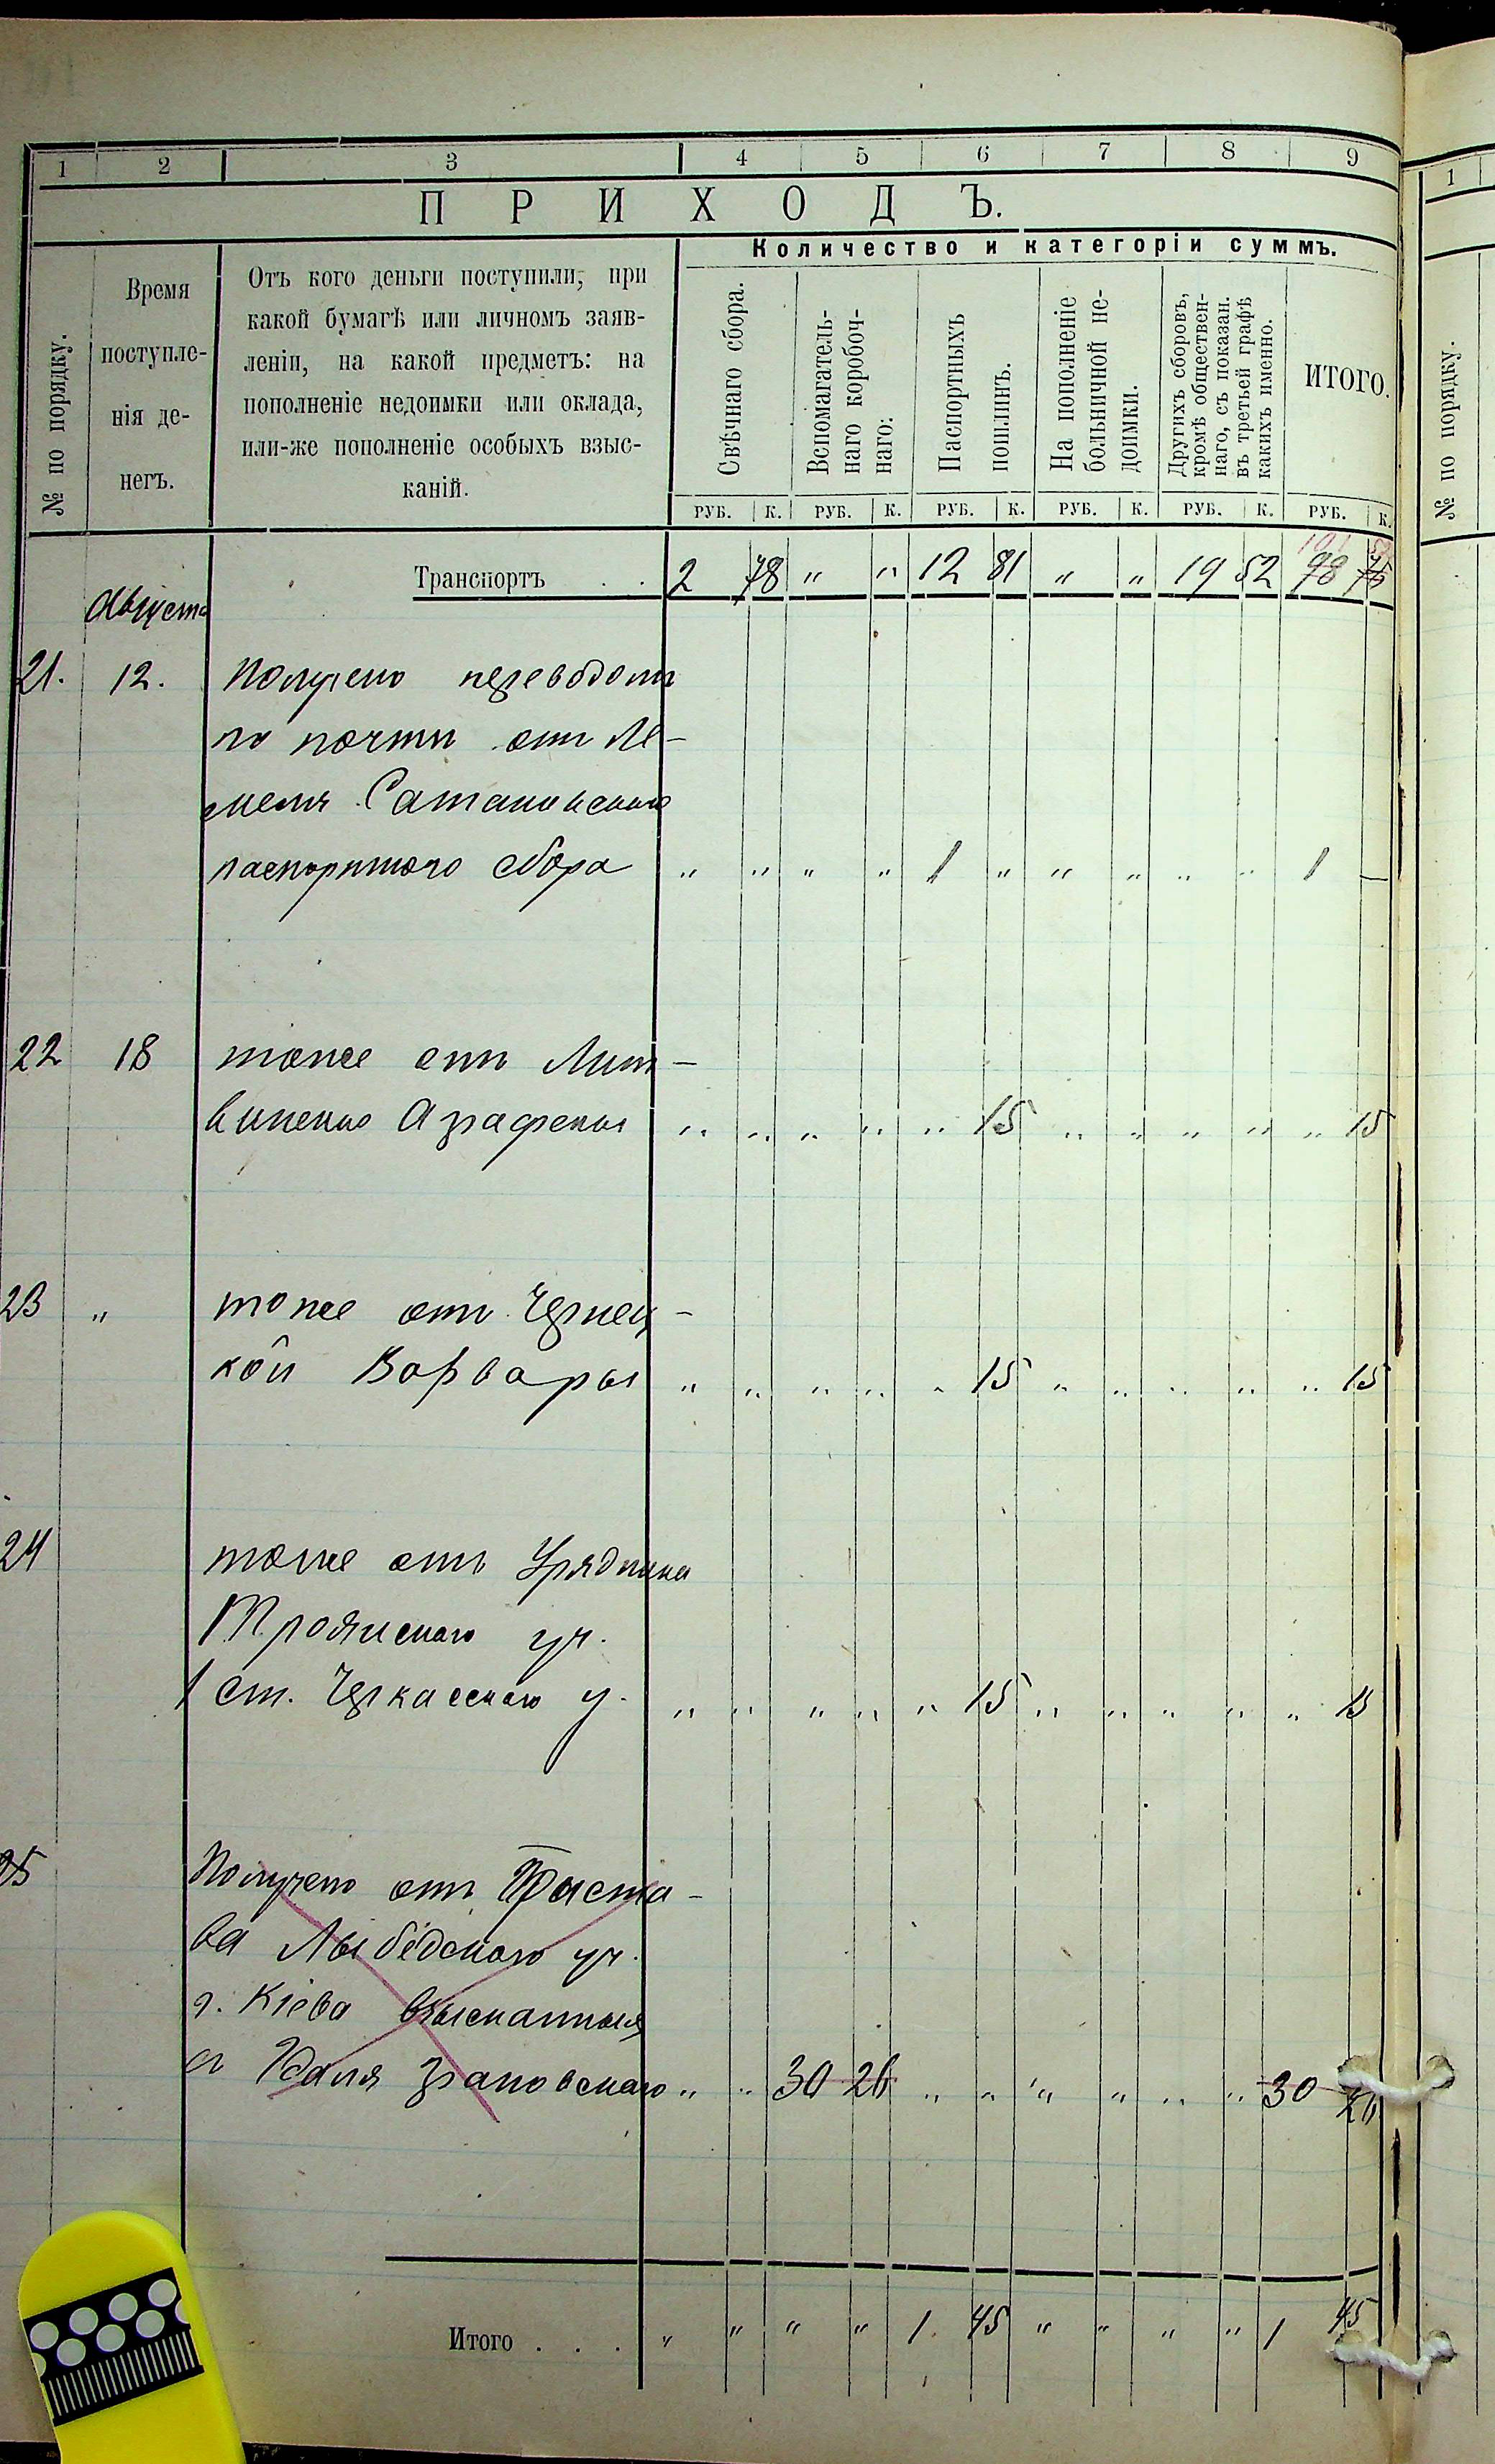 1 2 3 4 5 6 7 8 9
ПРИХОДЪ.
Количество и категоріи суммъ.
№ по порядку.
Время
поступле-
нія де-
негъ.
Отъ кого деньги поступили, при
какой бумагѣ или личномъ заяв-
леніи, на какой предметъ: на
пополненіе недоимки или оклада,
или-же пополненіе особыхъ взыс-
каній.
Свѣчнаго сбора.
Вспомагатель-
наго коробоч-
наго:
Паспортныхъ
пошлинъ.
На пополненіе
больничной не-
доимки.
Другихъ сборовъ,
кромѣ обществен-
наго, съ показан.
въ третьей графѣ
какихъ именно.
ИТОГО.
РУБ. К. РУБ. К. РУБ. К. РУБ. К. РУБ. К. РУБ. К.
Транспортъ . . 2 78 " " 12 81 " " 19 52 98 75
Августа
21. 12. Получено переводомъ
по почти отъ Ле-
меля Сатановскаго
паспортнаго сбора " " " " 1 " " " " " 1 —
22 18 тоже отъ Лит-
виненко Аграфены " " " " " 15 " " " " " 15
23 " тоже отъ Чернец-
кой Варвары " " " " " 15 " " " " " 15
24 тоже отъ Урядника
Троянскаго уч.
1 ст. Черкасскаго у. " " " " " 15 " " " " " 15
25 Получено отъ Приста-
ва Лыбедскаго уч.
г. Кіева взысканныя
съ Грановскаго " " 30 26 " " " " " " 30 26
Итого . . . " " " " 1 45 " " " " 1 45
1
№ по порядку.